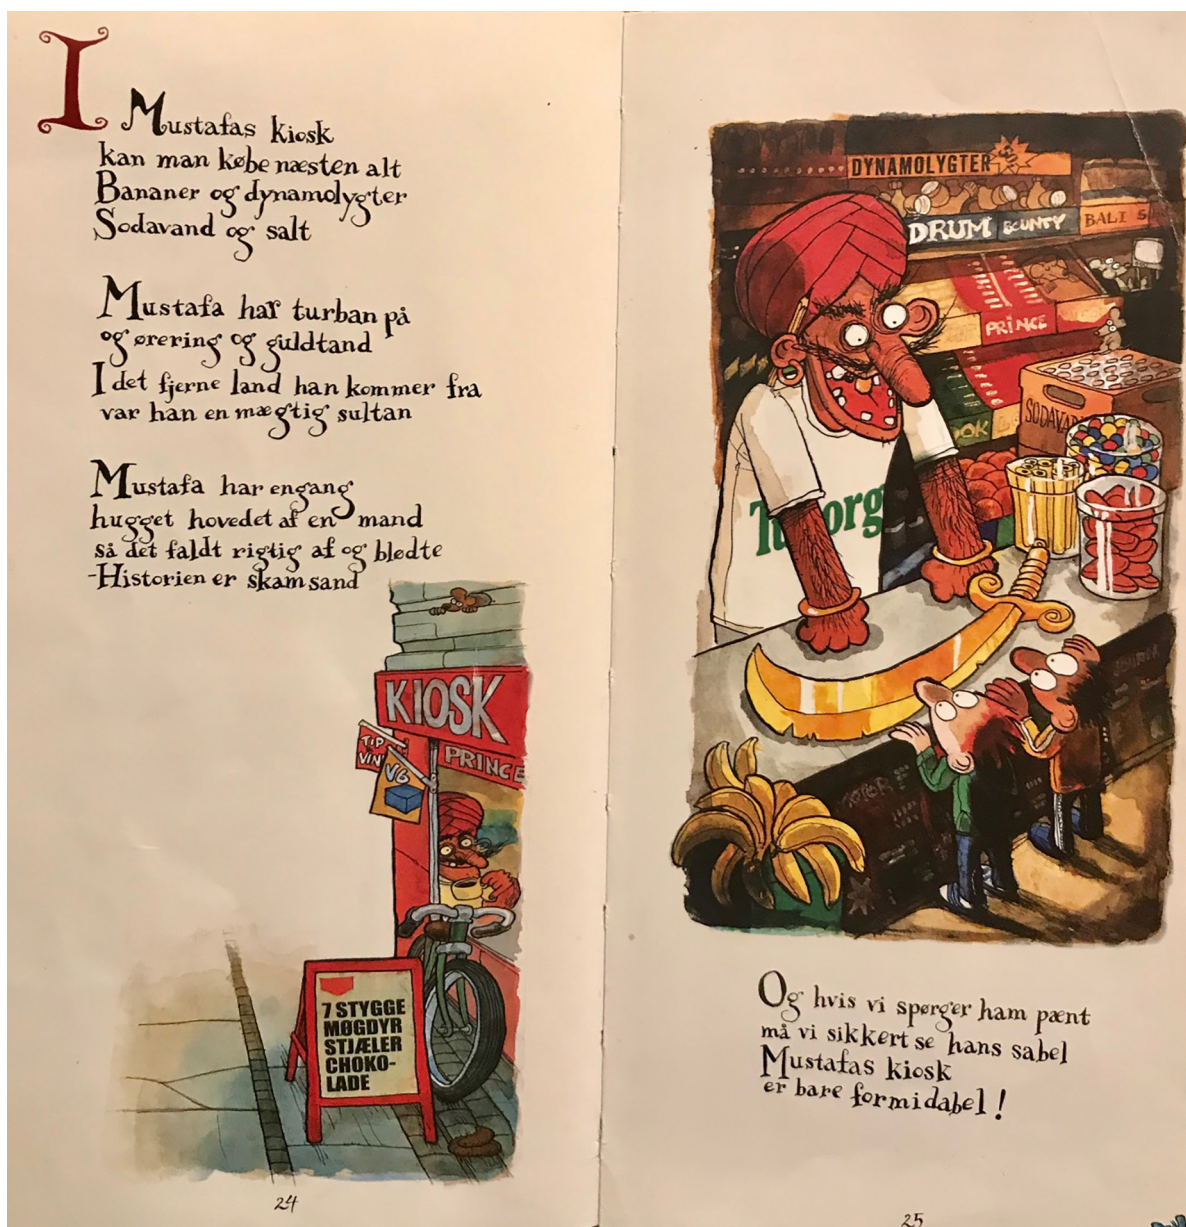 I Mustafas kiosk
kan man købe næsten alt
Bananer og dynamolygter
Sodavand og salt
Mustafa har turban på
og ørering og guldtand
I det fjerne land han kommer fra
var han en mægtig sultan
Mustafa har engang
hugget hovedet af en mand
så det faldt rigtig af og blødte
-Historien er skam sand
KIOSK
PRINCE
TIP
VIN
VG
7 STYGGE
MØGDYR
STJÆLER
CHOKO-
LADE
24
DYNAMOLYGTER
DRUM
BOUNTY
BALI S
PRINCE
SODAVAN
OK
Tuborg
Og hvis vi spørger ham pænt
må vi sikkert se hans sabel
Mustafas kiosk
er bare formidabel!
25